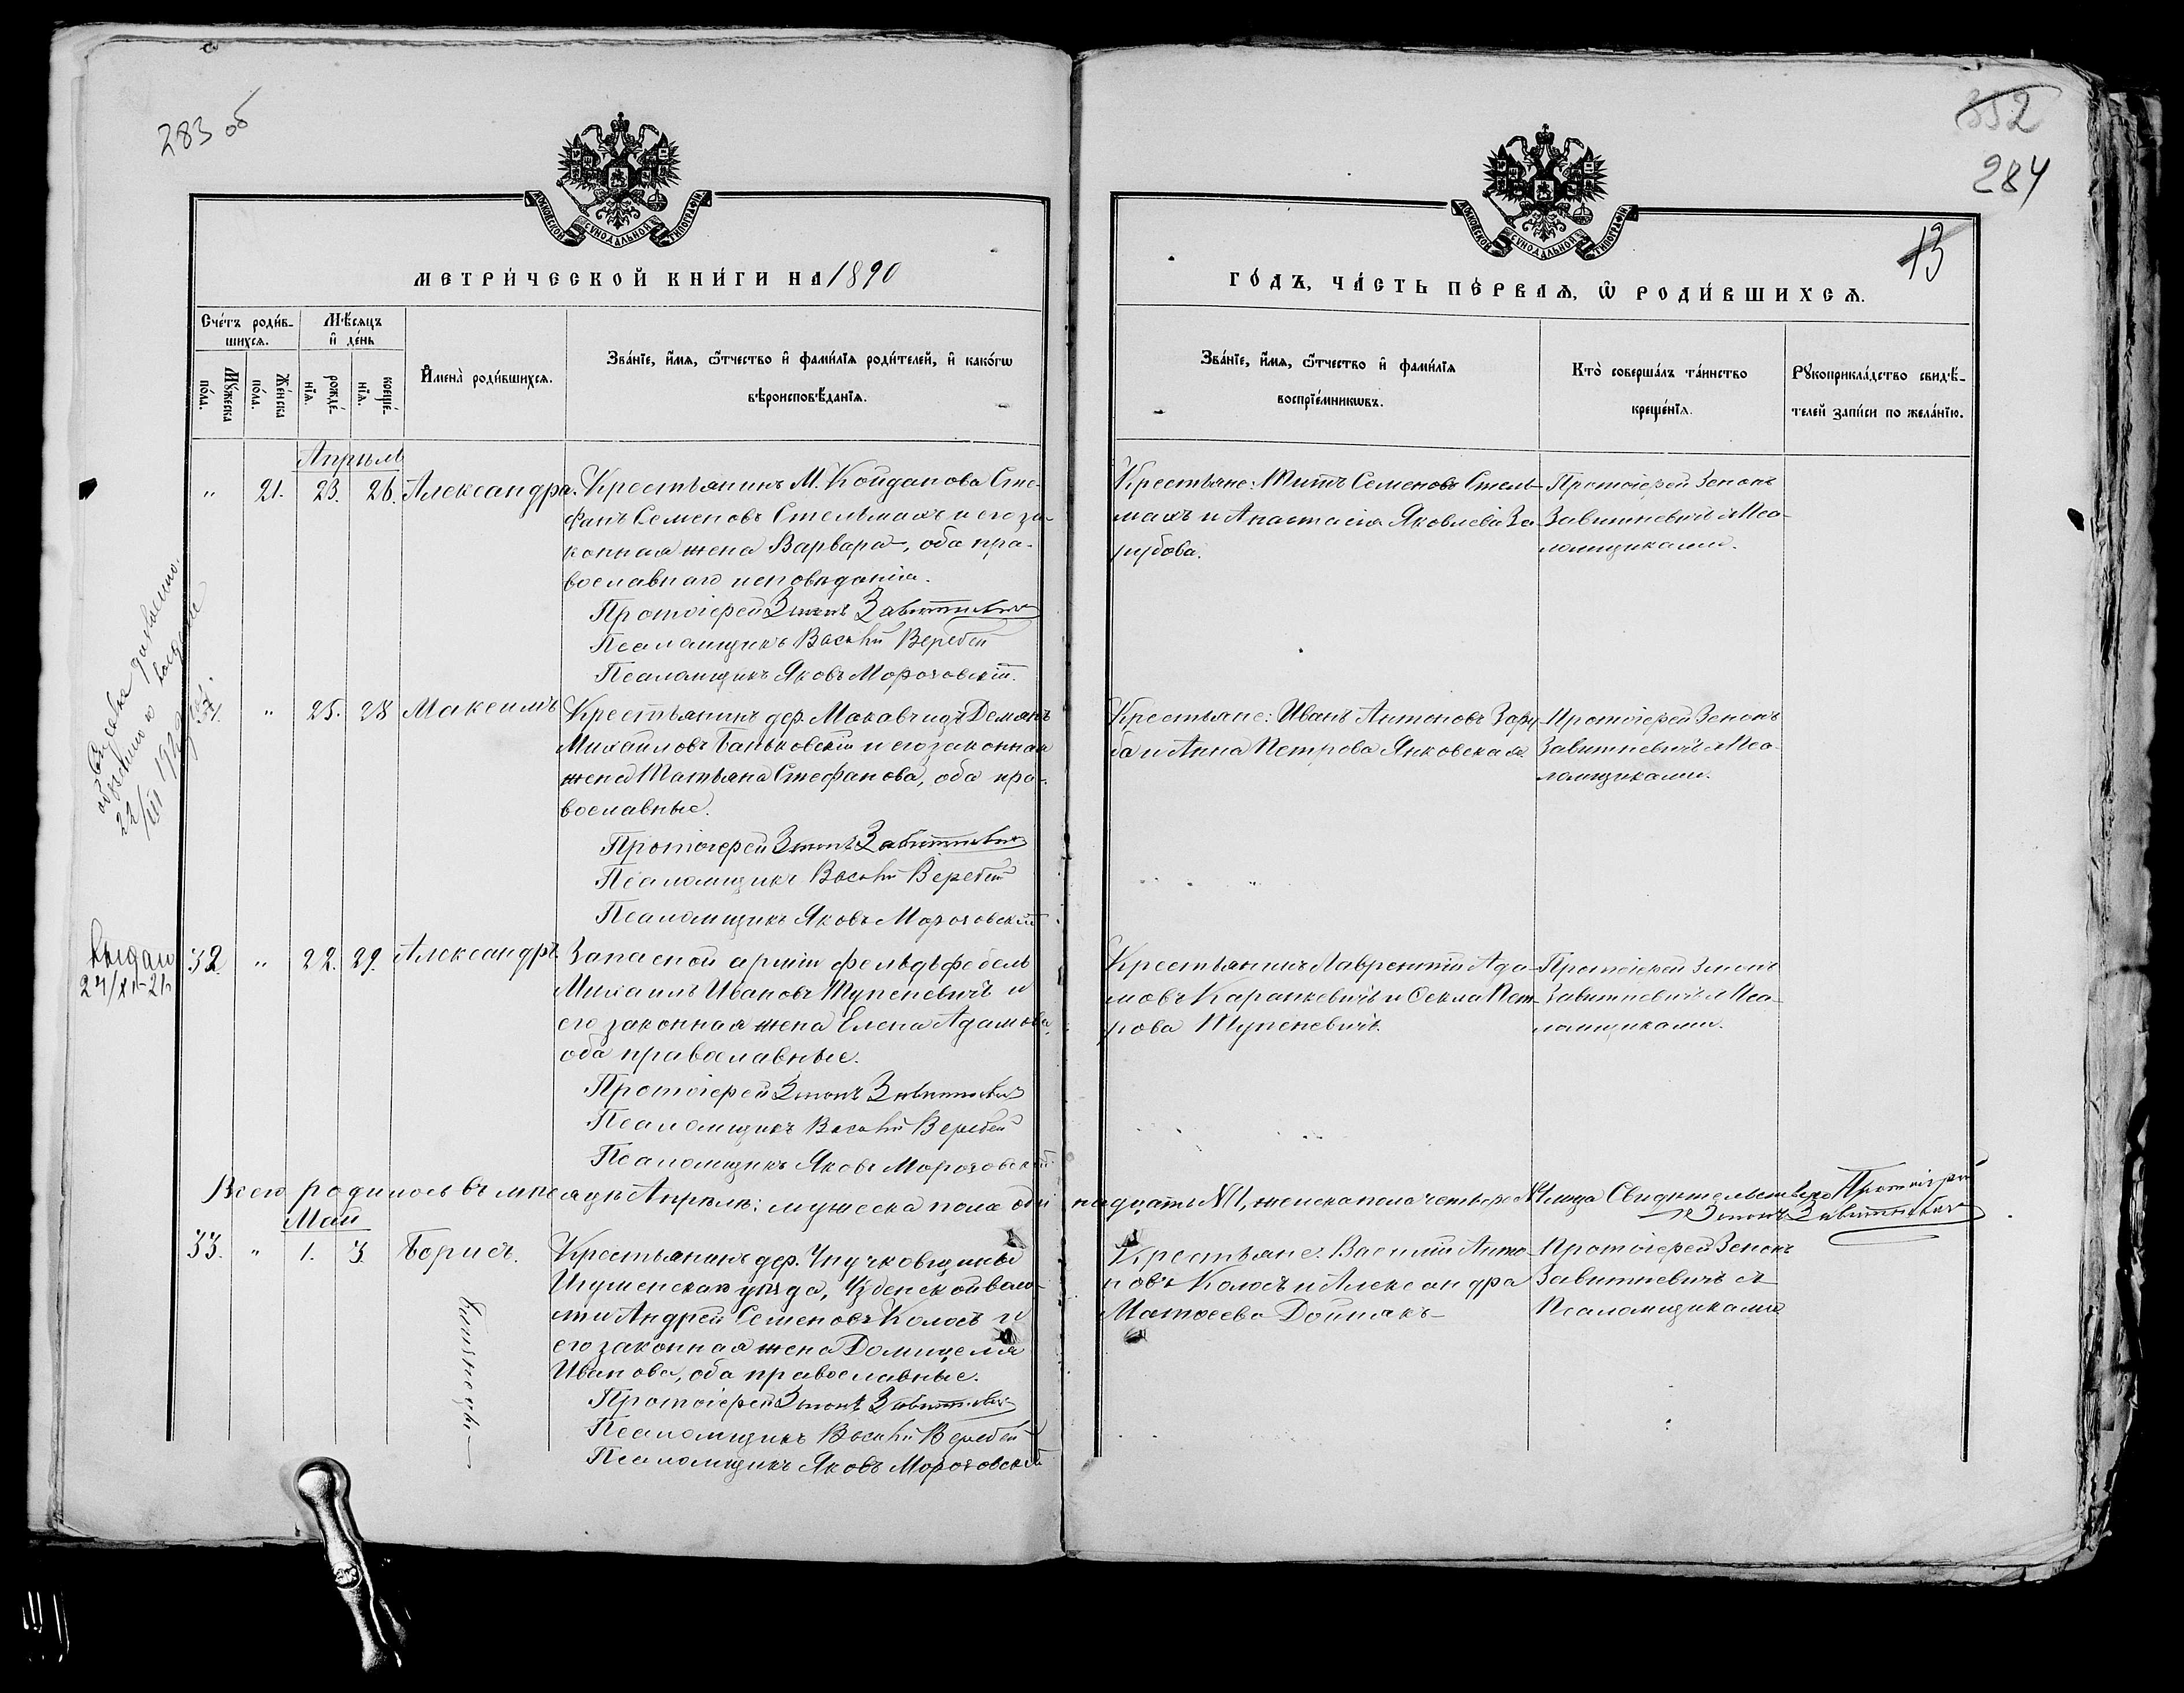 283 об
МОСКОВСКОЙ СѴНОДАЛЬНОЙ ТИПОГРАФІИ
МЕТРИ́ЧЕСКОЙ КНИ́ГИ НА 1890
Сче́тъ роди́в-
шихсѧ.
Мѣ́сѧцъ
и҆ де́нь
Мꙋ́жеска
по́ла.
Же́нска
по́ла.
рожде́-
нїѧ.
креще́-
нїѧ.
И҆мена̀ роди́вшихсѧ.
Зва́нїе, и҆́мѧ, ѻ҆́тчество и҆ фами́лїѧ роди́телей, и҆ како́гѡ
вѣроисповѣ́данїѧ.
Апрѣль
" 21. 23. 26. Александра.
Крестьянинъ М. Койданова Сте-
фанъ Семеновъ Стельмахъ и его за-
конная жена Варвара, оба пра-
вославнаго исповѣданія.
Протоіерей Зенонъ Завитневичъ
Псаломщикъ Василій Веребей
Псаломщикъ Яковъ Морозовскій.
31. " 25. 28 Максимъ
Крестьянинъ дер. Макавчицъ Демьянъ
Михайловъ Баньковскій и его законная
жена Татьяна Стефанова, оба пра-
вославные.
Протоіерей Зенонъ Завитневичъ
Псаломщикъ Василій Веребей
Псаломщикъ Яковъ Морозовскій
22/III 192
Выдан
32. " 22. 29. Александръ.
Запасной арміи фельдъфебель
Михаилъ Ивановъ Тупеневичъ и
его законная жена Елена Адамова,
оба православные.
Протоіерей Зенонъ Завитневичъ
Псаломщикъ Василій Веребей
Псаломщикъ Яковъ Морозовскій
Всего родилось въ мѣсяцѣ Апрѣлѣ: мужеска пола оди
Май
33. " 1. 3. Борисъ.
Крестьянинъ дер.
Игуменскаго уѣзда, Узденской воло-
сти Андрей Семеновъ Колосъ и
его законная жена Домицеля
Иванова, оба православные.
Протоіерей Зенонъ Завитневичъ
Псаломщикъ Василій Веребей
Псаломщикъ Яковъ Морозовскій
352
284
13
МОСКОВСКОЙ СѴНОДАЛЬНОЙ ТИПОГРАФІИ
ГО́ДЪ, ЧА́СТЬ ПЕ́РВАѦ, Ѽ РОДИ́ВШИХСѦ.
Зва́нїе, и҆́мѧ, ѻ҆́тчество и҆ фами́лїѧ
воспрїе́мникѡвъ.
Кто̀ соверша́лъ та́инство
креще́нїѧ.
Рꙋкоприкла́дство свидѣ́-
телей за́писи по жела́нїю.
Крестьяне: Титъ Семеновъ Стель-
махъ и Анастасія Яковлева За-
рубова.
Протоіерей Зенонъ
Завитневичъ съ Пса-
ломщиками.
Крестьяне: Иванъ Антоновъ Зару-
ба и Анна Петрова Янковская
Протоіерей Зенонъ
Завитневичъ съ Пса-
ломщиками.
Крестьянинъ Лаврентій Ада-
мовъ Каранкевичъ и Ѳекла Пет-
рова Тупеневичъ.
Протоіерей Зенонъ
Завитневичъ съ Пса-
ломщиками.
надцать № 11, женска пола четыре № 4 лица Свидетельствую Протоіерей
Зенонъ Завитневичъ
Крестьяне: Василій Анто-
новъ Колосъ и Александра
Матѳеева Дойнякъ
Протоіерей Зенонъ
Завитневичъ съ
Псаломщиками